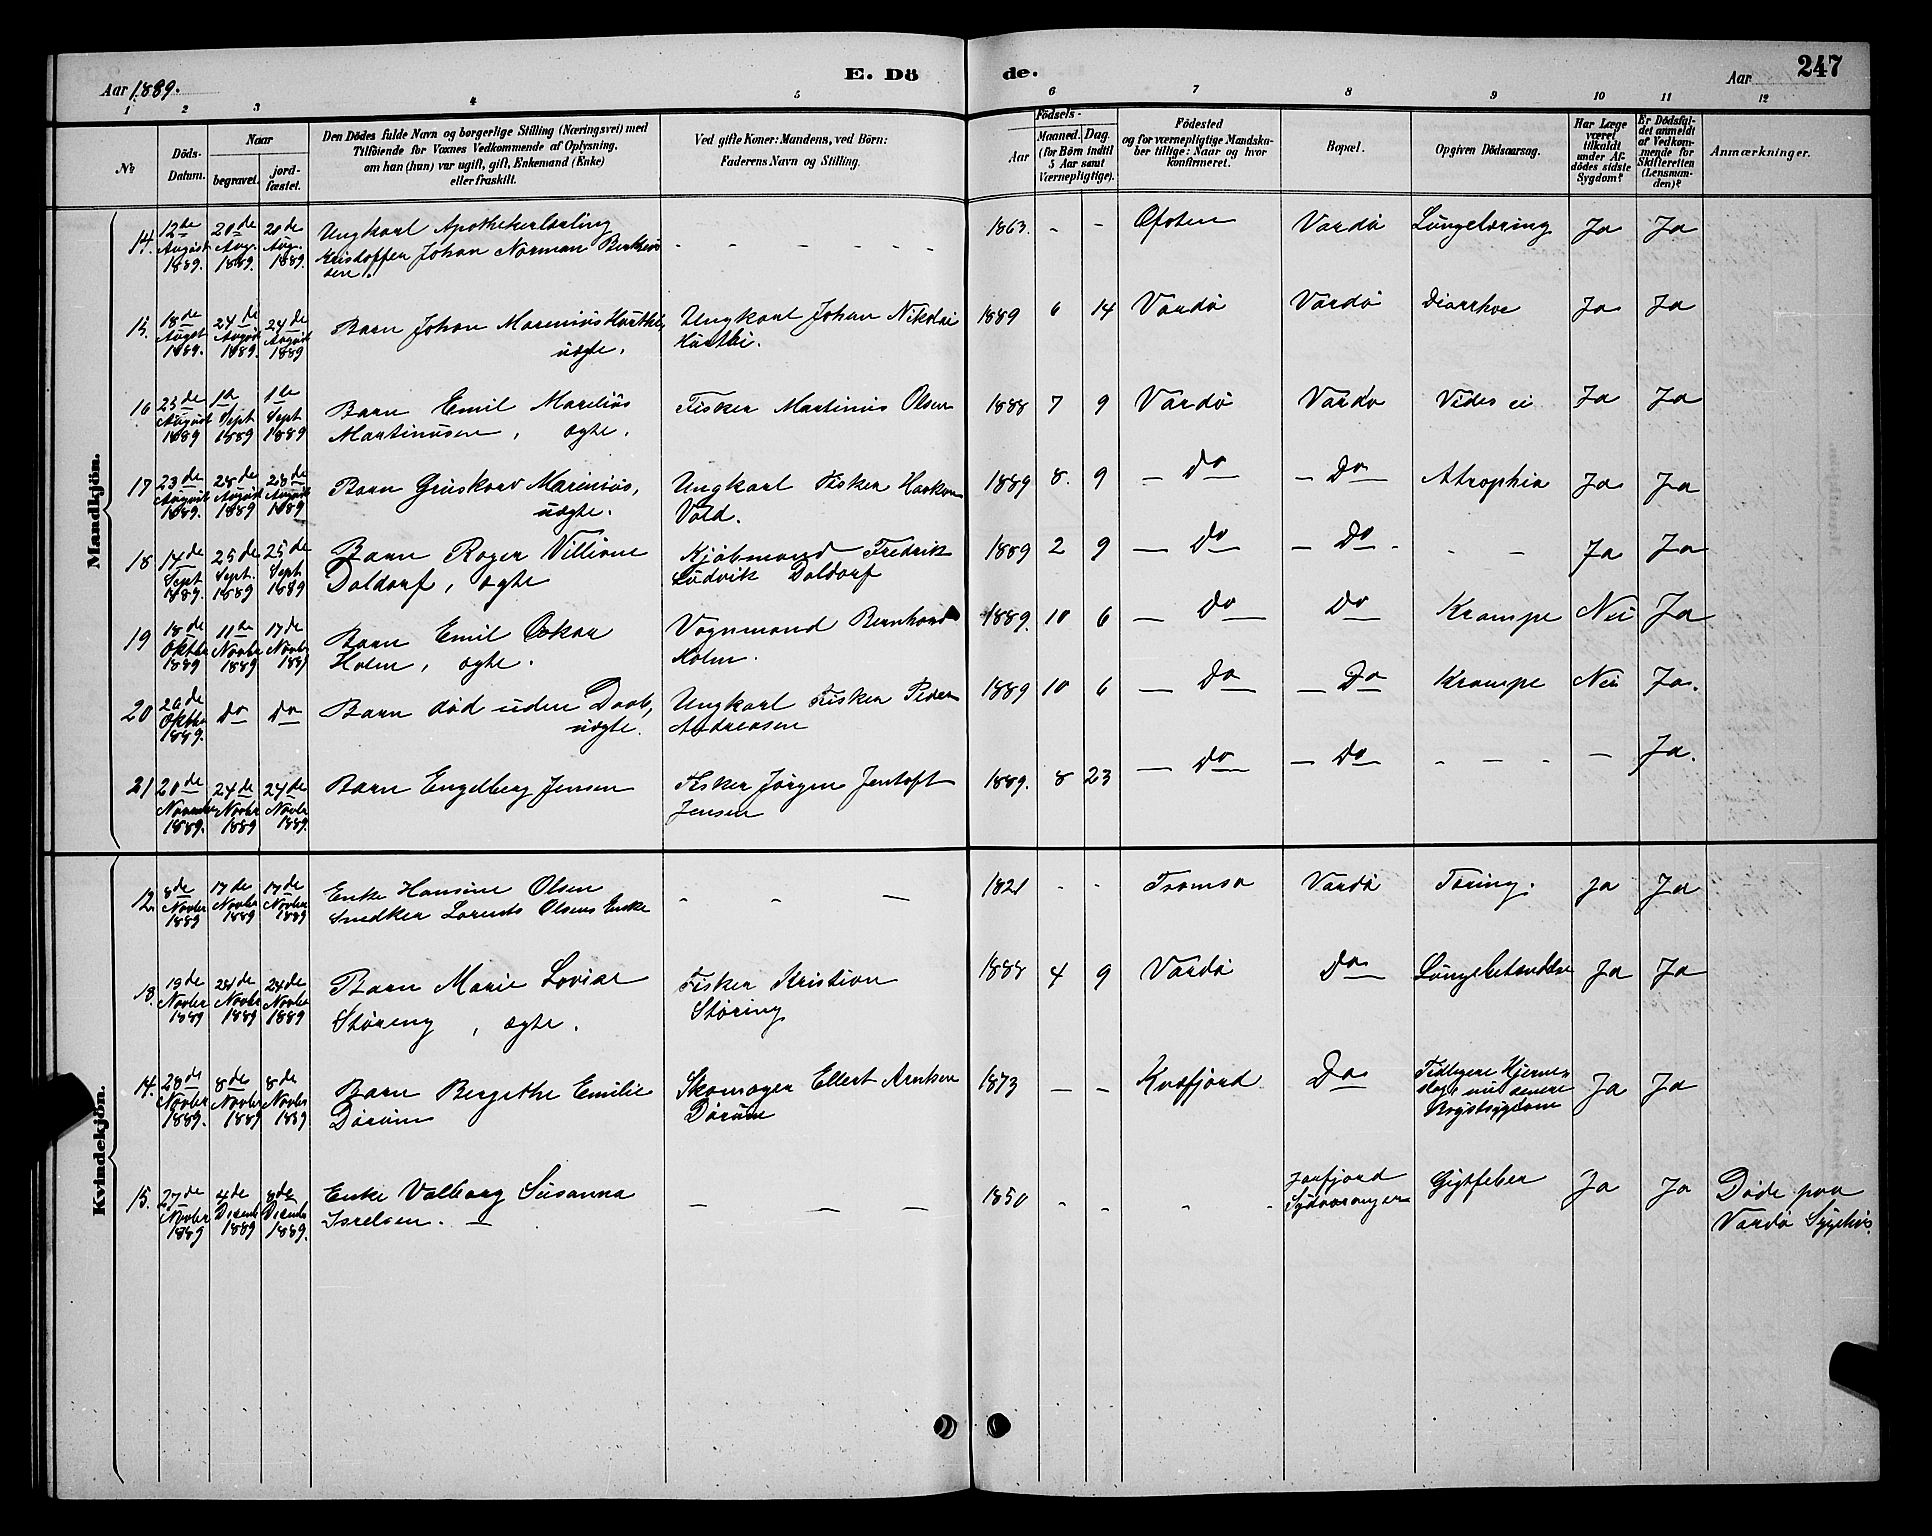 Aar 1889.
E. Döde.
Aar
247
1 2 3 4 5 6 7 8 9 10 11 12
№
Döds-
Datum.
Naar
begravet.
jord-
fæstet.
Den Dödes fulde Navn og borgerlige Stilling (Næringsvei) med
Tilföiende for Voxnes Vedkommende af Oplysning,
om han (hun) var ugift, gift, Enkemand (Enke)
eller fraskilt.
Ved gifte Koner: Mandens, ved Börn:
Faderens Navn og Stilling.
Födsels-
Aar
Maaned. Dag.
(for Börn indtil
5 Aar samt
Værnepligtige).
Födested
og for værnepligtige Mandska-
ber tillige: Naar og hvor
konfirmeret.
Bopæl.
Opgiven Dödsaarsag.
Har Læge
været
tilkaldt
under Af-
dödes sidste
Sygdom?
Er Dödsfal-
det anmeldt
af Vedkom-
mende for
Skifteretten
(Lensman-
den)?
Anmærkninger.
Mandkjön.
14. 12de August 1889. 20de Aug. 1889. 20de Aug. 1889.
Ungkarl Apothekerlærling
Kristoffer Johan Norman
- - - - -
1863. - - Ofoten Vardö Ja Ja
15. 18de August 1889. 24de August 1889. 24de August 1889
Barn Johan Marenius
uægte.
Ungkarl Johan Nikolai
1889 6 14 Vardö Vardö Diarrhoe Ja Ja
16 23de August 1889 1te Sept 1889 1te Sept 1889
Barn Emil Marelius
Martinusen, ægte.
Fisker Martinus Olsen
1888 7 9 Vardö Vardö Vides ei Ja Ja
17 23de August 1889. 28de August 1889 28de August 1889
Barn Marinius,
uægte.
Ungkarl Fisker Haakon
Vold.
1889 8. 9 — Do — Do Atrophia Ja Ja
18 17de Sept 1889. 25de Sept. 1889 25de Sept 1889
Barn Roger Villiam
Doldorf, ægte
Kjöbmand Fredrik
Ludvik Doldorf
1889 2 9 — Do — Do - - - Ja Ja
19 18de Oktbr 1889 11te Novbr 1889 17de Novbr 1889
Barn Emil Oskar
Holm, ægte.
Vognmand Bernhard
Holm.
1889. 10 6 — Do Do Krampe Nei Ja
20 26de Oktbr 1889. Do Do
Barn död uden Daab,
uægte.
Ungkarl Fisker Peder
Andreasen
1889 10 6 — Do — Do Krampe Nei Ja.
21 20de November 1889. 24de Novbr 1889 24de Novbr 1889.
Barn Engelberg Jensen
Fisker Jörgen Jentoft
Jensen
1889. 8 23 — Do — Do - - - - — Ja.
Kvindekjön.
12. 8de Novbr 1889 17de Novbr 1889 17de Novbr 1889
Enke Hansine Olsen
Snedker Lorents Olsens Enke
- - —
1821 - - Tromsö Vardö Tæring. Ja Ja
13. 19de Novbr 1889 24de Novbr 1889 24de Novbr 1889
Barn Marie Lovise
Störeng, ægte.
Fisker Kristian
Störing
1888 4 9 Vardö Do Lungebetændelse Ja Ja
14. 28de Novbr 1889. 8de Novbr 1889 8de Novbr 1889
Barn Bergithe Emilie
Dörum
Skomager Ellert Arntsen
Dörum
1873 — - Kvæfjord Do Tidligere Hjerne-
slag med senere
Brystsygdom Ja Ja
15. 27de Novbr 1889 4de Decembr 1889 8de Decembr 1889.
Enke Valborg Susanna
Isrelsen. —
— — —
1850 - - - - Jarfjord
Sydvaranger Gigtfeber Ja Ja Döde paa
Vardö Sygehus.